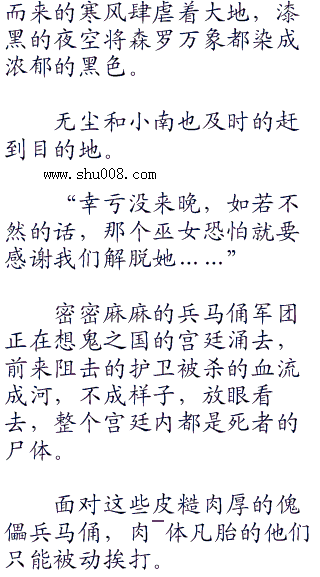 而来的寒风肆虐着大地，漆
黑的夜空将森罗万象都染成
浓郁的黑色。
无尘和小南也及时的赶
到目的地。
www.shu008.com
“幸亏没来晚，如若不
然的话，那个巫女恐怕就要
感谢我们解脱她……”
密密麻麻的兵马俑军团
正在想鬼之国的宫廷涌去，
前来阻击的护卫被杀的血流
成河，不成样子，放眼看
去，整个宫廷内都是死者的
尸体。
面对这些皮糙肉厚的傀
儡兵马俑，肉¯体凡胎的他们
只能被动挨打。